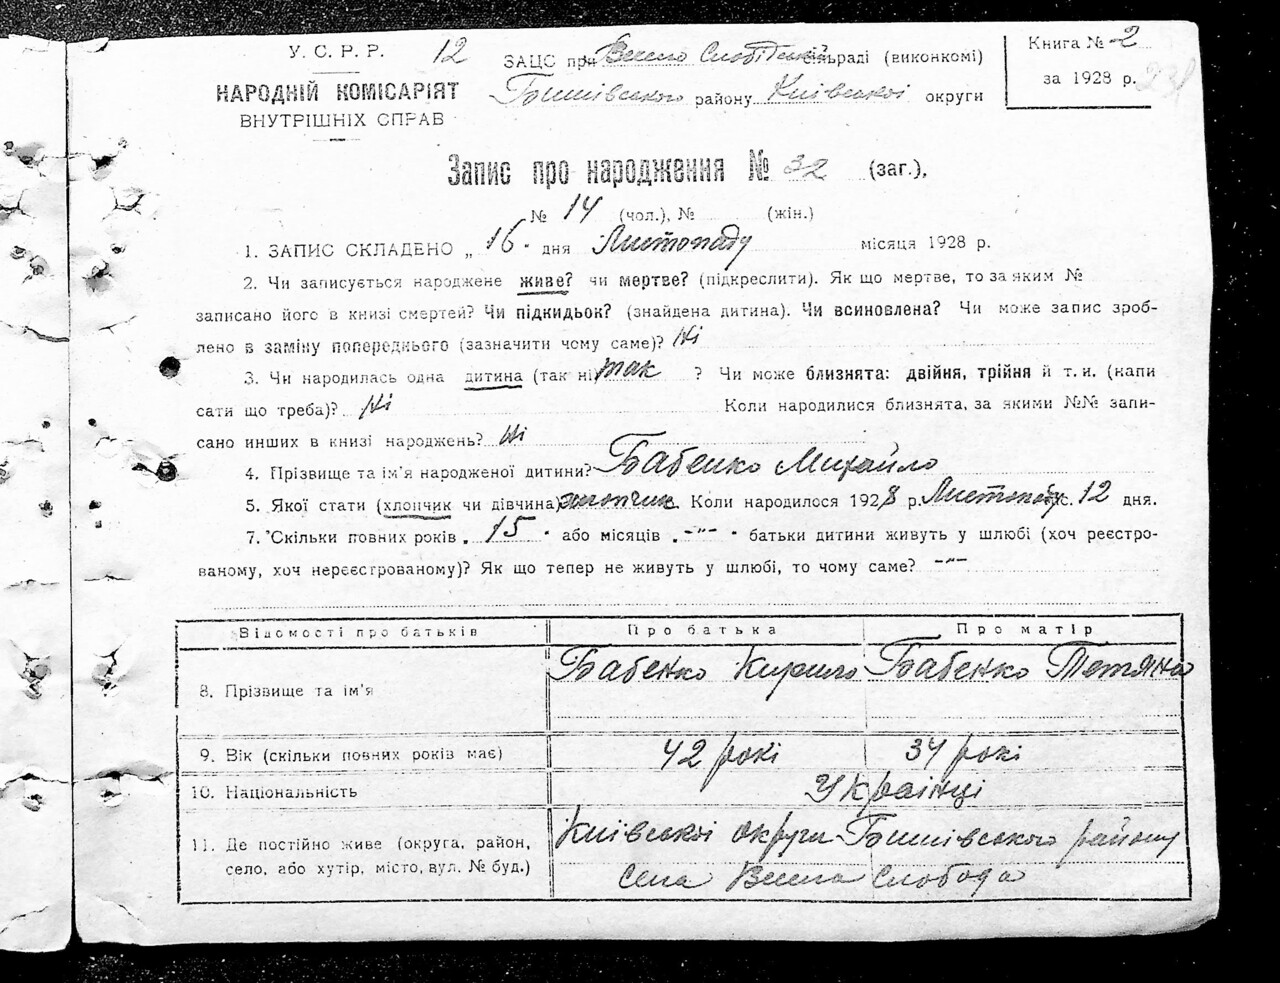 У.С.Р.Р. 12 ЗАЦС при Весело Слобідській сільраді (виконкомі) Книга № 2
НАРОДНІЙ КОМІСАРІЯТ району Київської округи за 1928 р.
ВНУТРІШНІХ СПРАВ
Запис про народження № 32 (заг.),
№ 14 (чол.), № (жін.)
1. ЗАПИС СКЛАДЕНО „ 16 " дня Листопаду місяця 1928 р.
2. Чи записується народжене живе? чи мертве? (підкреслити). Як що мертве, то за яким №
записано його в книзі смертей? Чи підкидьок? (знайдена дитина). Чи всиновлена? Чи може запис зроб-
лено в заміну попереднього (зазначити чому саме)? Ні
3. Чи народилась одна дитина (так ні) так ? Чи може близнята: двійня, трійня й т. и. (напи
сати що треба)? Ні Коли народилися близнята, за якими №№ запи-
сано инших в книзі народжень? Ні
4. Прізвище та ім'я народженої дитини? Бабенко Михайло
5. Якої стати (хлопчик чи дівчина) хлопчик Коли народилося 1928 р. Листопаду с. 12 дня.
7. Скільки повних років „ 15 " або місяців „ -"- " батьки дитини живуть у шлюбі (хоч реєстро-
ваному, хоч нереєстрованому)? Як що тепер не живуть у шлюбі, то чому саме? -"-
Відомості про батьків Про батька Про матір
8. Прізвище та ім'я Бабенко Кирило Бабенко Тетяна
9. Вік (скільки повних років має) 42 рокі 34 рокі
10. Національність Українці
11. Де постійно живе (округа, район, Київської округи району
село, або хутір, місто, вул. № буд.) Села Весела Слобода